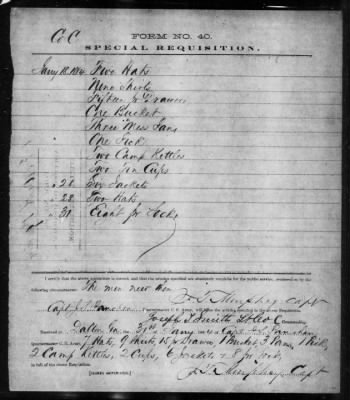 Co C
FORM NO. 40.
SPECIAL REQUISITION.
Jany 18 1864 Five Hats
Nine Shirts
Fifteen pr Drawers
One Bucket
Three Mess Pans
One Pick
Two Camp Kettles
Two Tin Cups
" 28 Jackets
" 28 Two Hats
" 31 Eight pr Socks
I certify that the above requisition is correct, and that the articles specified are absolutely requisite for the public service, rendered so by the
following circumstances: The men need them
Capt
Quartermaster, C. S. Army, will issue the articles specified in the above requisition.
Commanding.
Received at Dalton Ga. the of Jany 1864 of Capt
Quartermaster C. S. Army, 7 Hats, 9 Shirts, 15 pr Drawers, 1 Bucket, 3 Pans, 1 Pick,
2 Camp Kettles, 2 Cups, 6 Jackets & 8 pr Socks
in full of the above requisition.
Capt